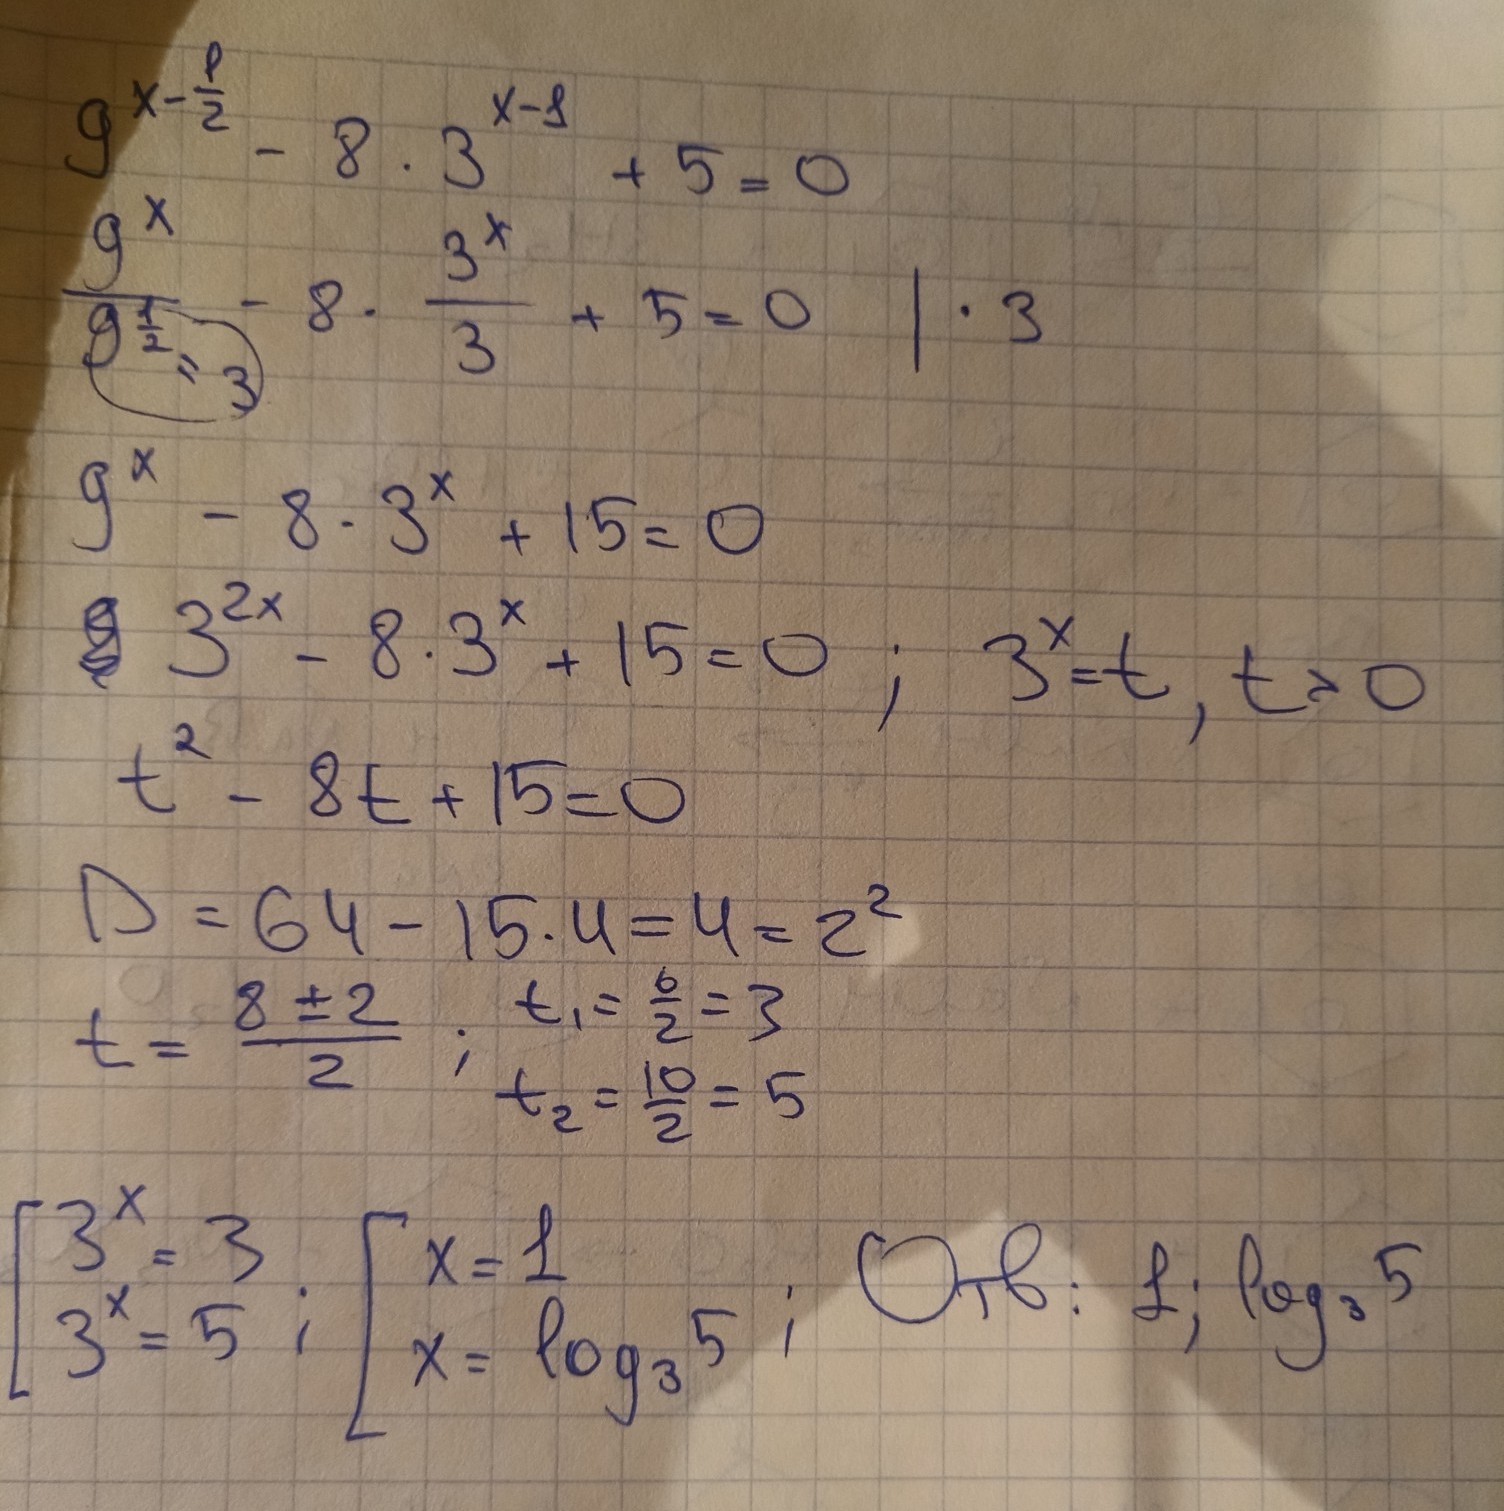 9^{x-\frac{1}{2}} - 8 · 3^{x-1} + 5 = 0
\frac{9^x}{9^{\frac{1}{2}} = 3} - 8 · \frac{3^x}{3} + 5 = 0 | · 3
9^x - 8 · 3^x + 15 = 0
3^{2x} - 8 · 3^x + 15 = 0 ; 3^x = t, t > 0
t^2 - 8t + 15 = 0
D = 64 - 15 · 4 = 4 = 2^2
t = \frac{8 ± 2}{2} ; t_1 = \frac{6}{2} = 3
t_2 = \frac{10}{2} = 5
[ 3^x = 3 ; [ x = 1 ; Отв: 1; log_3 5
3^x = 5 x = log_3 5